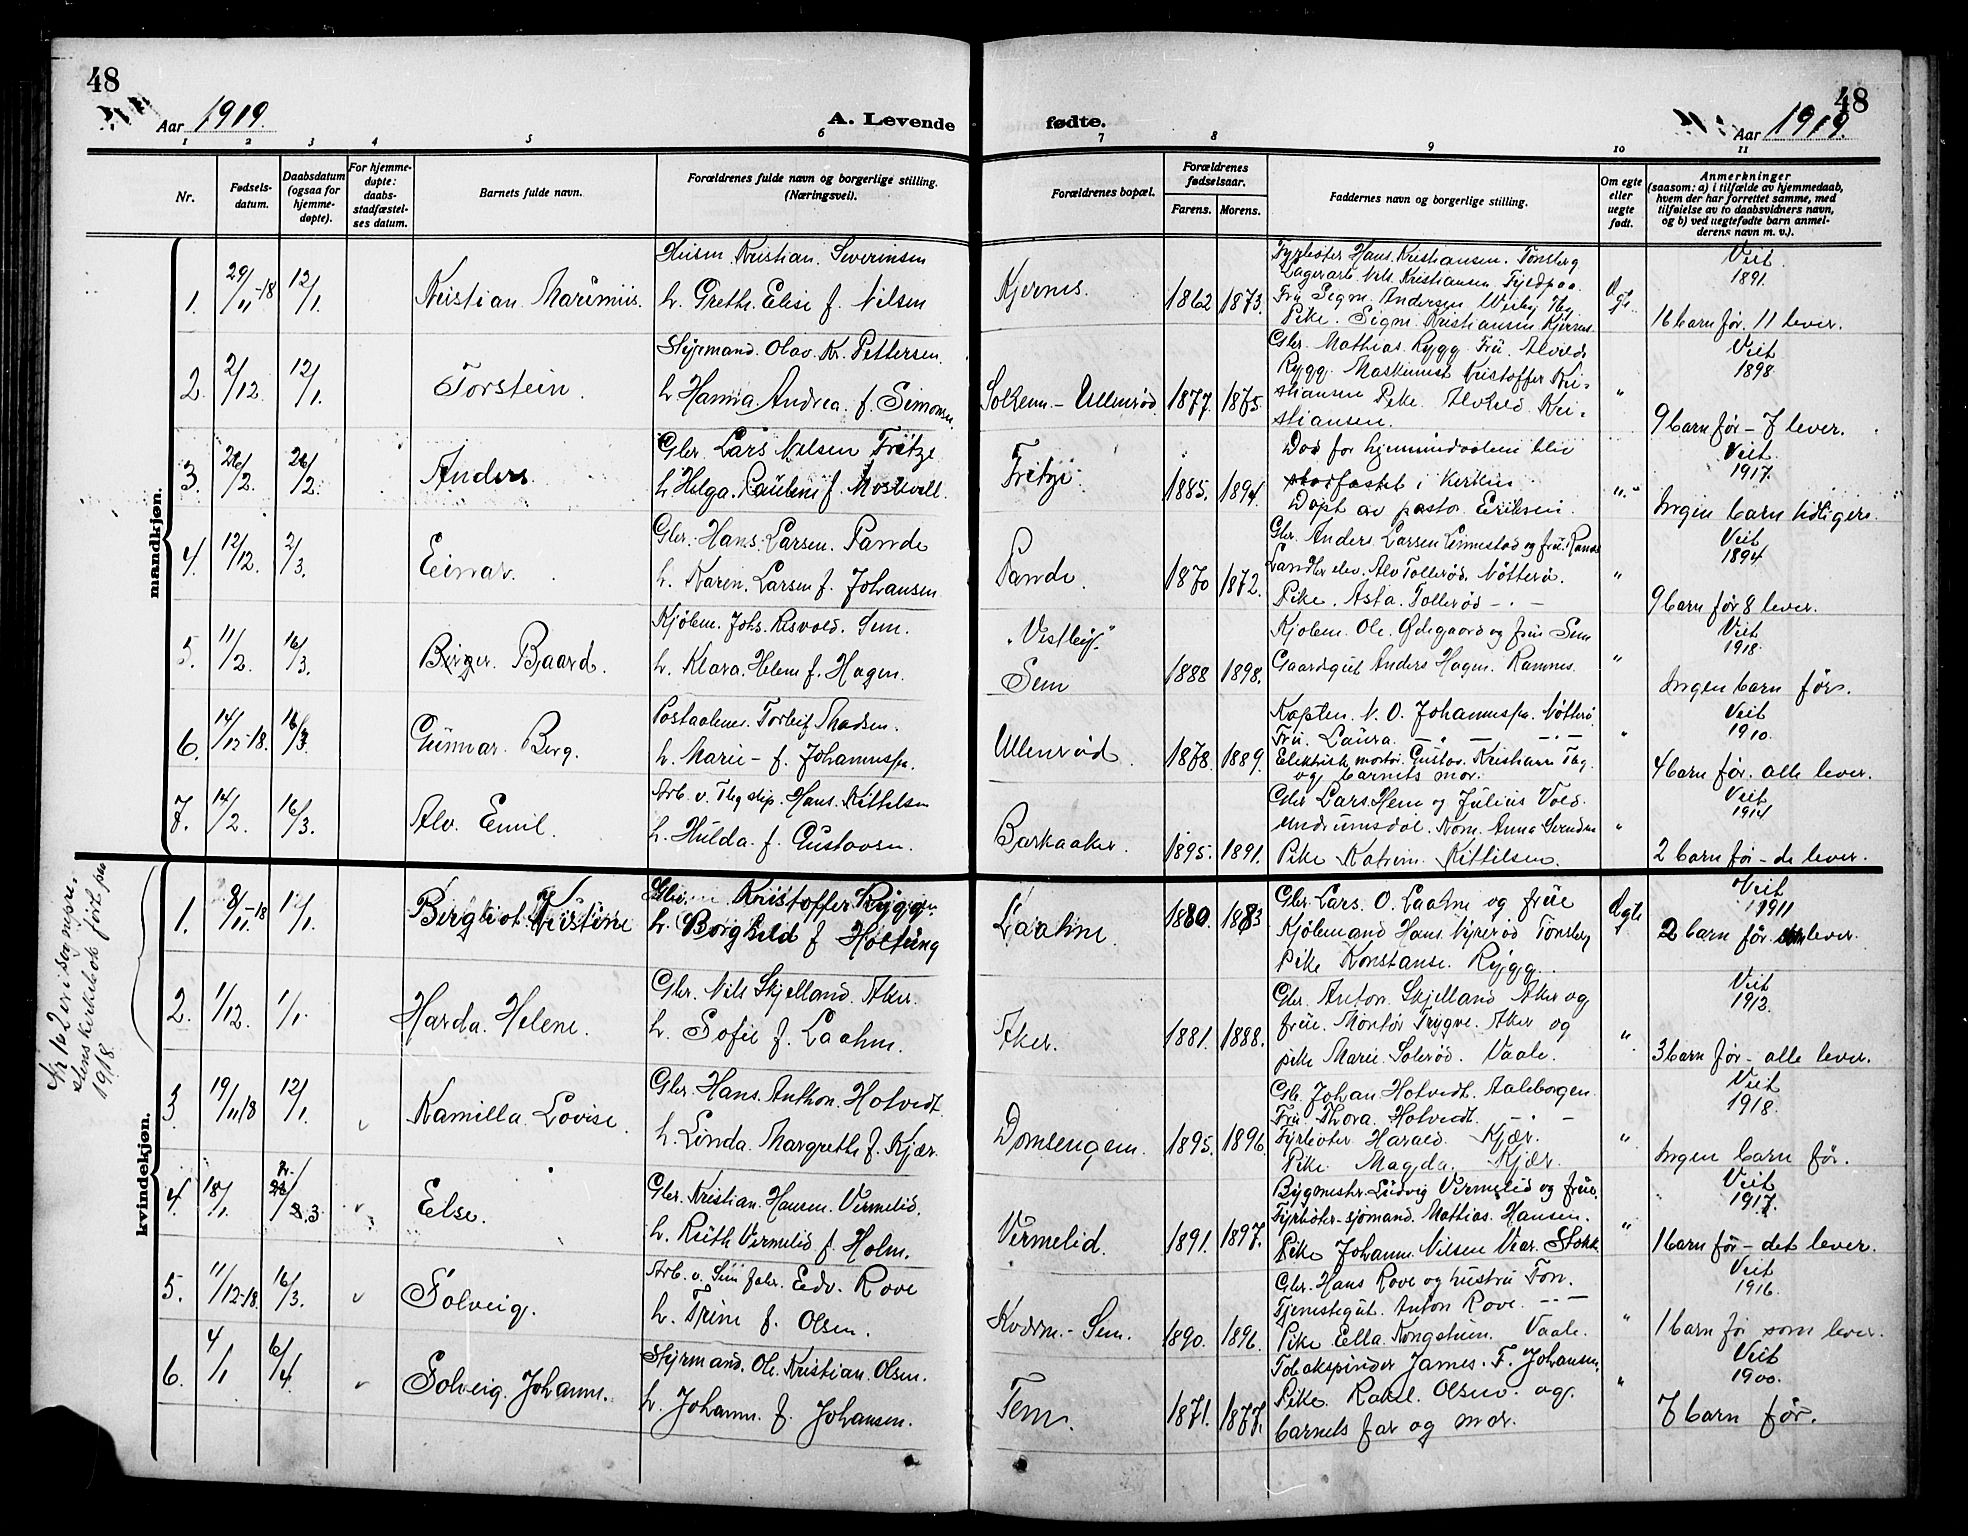 48
48
Aar 1919.
A. Levende fødte.
Aar 1919.
1 2 3 4 5 6 7 8 9 10 11
Nr.
Fødsels-
datum.
Daabsdatum
(ogsaa for
hjemme-
døpte).
For hjemme-
døpte:
daabs-
stadfæstel-
ses datum.
Barnets fulde navn.
Forældrenes fulde navn og borgerlige stilling.
(Næringsvei).
Forældrenes bopæl.
Forældrenes
fødselsaar.
Farens. Morens.
Faddernes navn og borgerlige stilling.
Om egte
eller
uegte
født.
Anmerkninger
(saasom: a) i tilfælde av hjemmedaab,
hvem der har forrettet samme, med
tilføielse av to daabsvidners navn,
og b) ved uegtefødte barn anmel-
derens navn m. v.).
mandkjøn.
1. 29/11-18 12/1
Kristian
Kristian Severinsen
h. Grethe Elise f. Nilsen
Kjernes.
1862 1873.
Fyrbøter Hans Kristiansen. Tønsberg
Pike. Signe Kristiansen Kjernes
Egte
Viet
1891.
16 barn før. 11 lever.
2. 2/12. 12/1.
Torstein.
Styrmand. Olav. Kr. Pettersen.
h. Hanna Andrea. f. Simonsen
Solheim - Ullenrød.
1877. 1875.
Gbr. Mathias Rygg. Fru. Alvilde
Rygg. Maskinist Kristoffer Kri-
stiansen Pike. Alvild. Kri-
stiansen.
"
Viet
1898.
9 barn før - 7 lever.
3. 26/2. 26/2.
Anders
Gbr. Lars Nilsen Fritze
h. Helga. Pauline f.
Fritze.
1885. 1894.
Daab for
i kirken
Døpt av pastor Eriksen.
"
Viet
1917.
Ingen barn tidligere.
4. 12/12. 2/3.
Einar.
Gbr. Hans. Larsen. Pande
h. Karen. Larsen f. Johansen
Pande.
1870 1872.
Gbr. Anders Larsen Linnestad og frue. Ramnes
Landbr elev. Alv Tollerød. Nøtterø.
Pike. Asta. Tollerød - " -
"
Viet
1894
9 barn før 8 lever.
5. 11/2. 16/3.
Birger. Baard.
Kjøbm. Johs. Risvold. Sem.
h. Klara. Helene f. Hagen.
"Vestby."
Sem
1888 1898.
Kjøbm. Ole. Ødegaard og frue Sem
Gaardgut Anders Hagen. Ramnes.
"
Viet
1918.
Ingen barn før.
6. 14/12-18. 16/3.
Gunnar. Berg.
Torleif Madsen.
h. Marie - f. Johannessen.
Ullenrød.
1878. 1889.
Kaptein. N. O. Johannessen. Nøtterø.
Fru. Laura. - " - - " -
Elektrisk montør. Gustav. Kristiansen
og barnets mor.
"
Viet
1910.
4 barn før. alle lever.
7. 14/2. 16/3.
Alv. Emil.
Arb. v. Hans. Kittelsen
h. Hulda. f. Gustavsen.
Barkaaker.
1895. 1891.
Gbr Lars Hem og Julius Vold.
Undrumsdal. Anna
Pike Katrine. Kittilsen.
"
Viet
1914
2 barn før - de lever.
kvindekjøn.
Nr 1 og 2 er i sognepre-
stens kirkebok ført paa
1918.
1. 8/11-18 1/1
Bergliot Kristine
Kristoffer Rygg.
h. Borghild f Høltung
Laahne.
1880. 1883
Gbr. Lars. O. Laahne og frue
Kjøbmand Hans Tønsberg
Pike Konstanse. Rygg.
Egte
Viet
1911
2 barn før lever.
2. 1/12. 1/1.
Harda. Helene.
Gbr. Nils Skjelland. Aker.
h. Sofie f. Laahne.
Aker.
1881. 1888.
Gbr. Anton. Skjelland Aker og
frue. Montør Trygve. Aker og
pike Marie. Solerød. Vaale.
"
Viet
1912.
3 barn før - alle lever.
3 19/11 18 12/1
Kamilla. Lovise.
Gbr. Hans. Anthon. Hotvedt.
h. Linda. Margrethe f. Kjær.
Domsengen.
1895. 1896.
Gb. Johan Hotvedt. Aaleborgen.
Fru. Thora. Hotvedt. - " -
Fyrbøter. Harald. Kjær.
Pike. Magda. Kjær.
"
Viet
1918.
Ingen barn før.
4. 18/1. 3
Else.
Gbr. Kristian. Hansen. Virmelid.
h. Ruth Virmelid f. Holm.
Virmelid.
1891. 1897.
Bygmestr. Ludvig Virmelid og frue.
Fyrbøter - sjømand. Mathias. Hansen.
Pike Johanne. Nilsen Vear. Stokke
"
Viet
1917.
1 barn før - det lever.
5. 11/12-18. 16/3.
Solveig.
Arb. v. Sem fabr. Edv. Rove
h. Trine f. Olsen.
Sem.
1890. 1896.
Gbr. Hans Rove og hustru Tøn.
Tjenestegut. Anton Rove. - " -
Pike Ella Kongshem. Vaale.
"
Viet
1916.
1 barn før som lever.
6. 4/1 6/4.
Solveig. Johanne.
Styrmand. Ole. Kristian. Olsen.
h. Johanne. f. Johansen.
Tem.
1871. 1877.
Tobakspinder James. F. Johansen.
Pike. Rakel. Olsen. og.
barnets far og mor.
"
Viet
1900.
7 barn før.